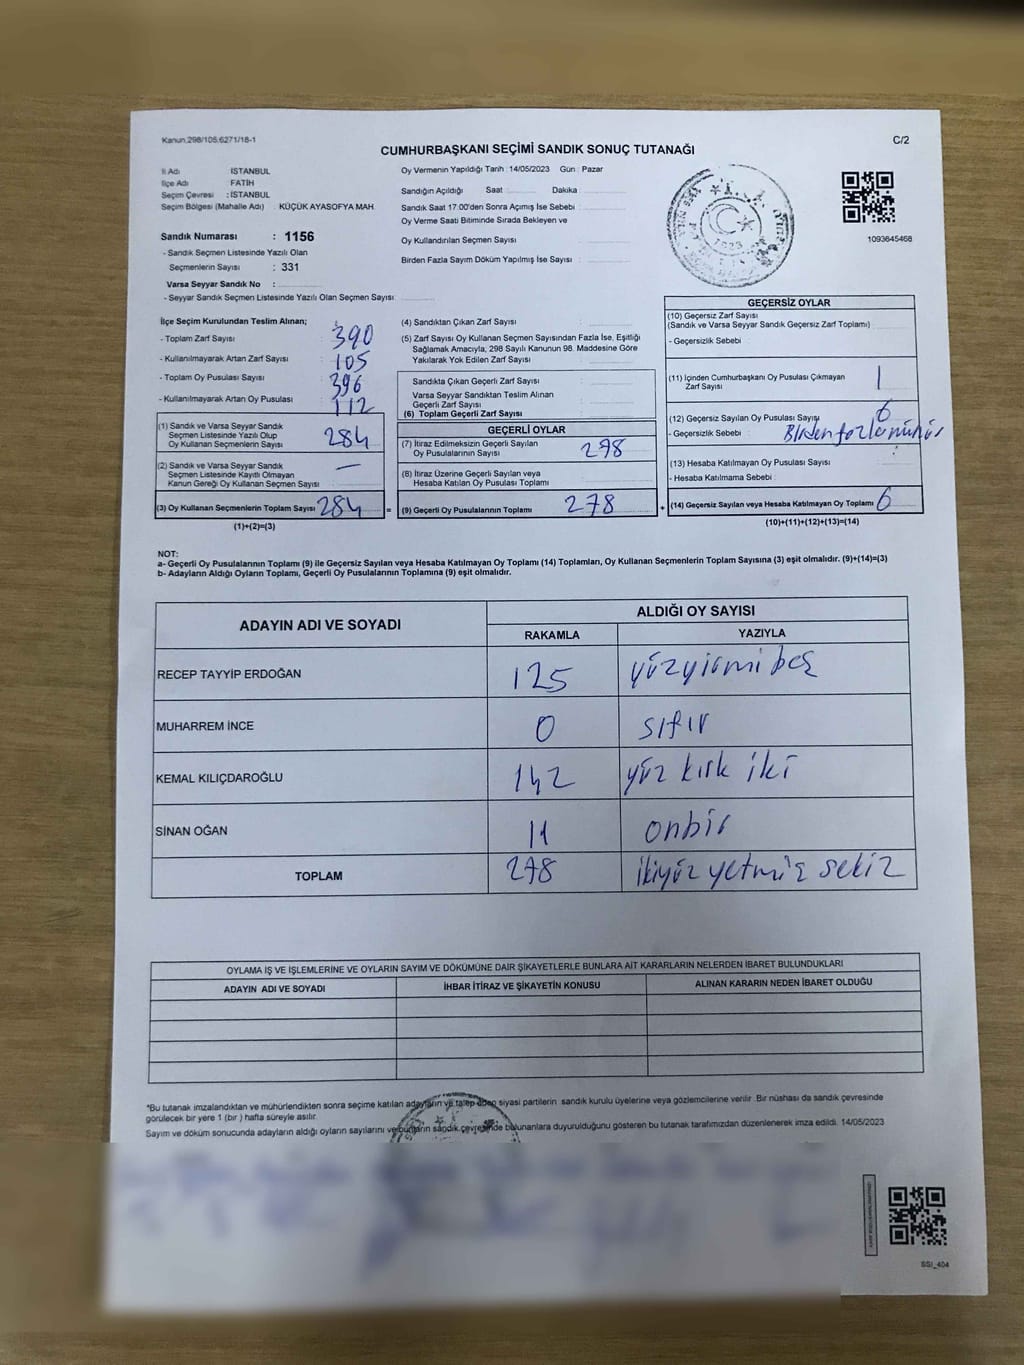 Kanun.298/105.6271/18-1
C/2
CUMHURBAŞKANI SEÇİMİ SANDIK SONUÇ TUTANAĞI
İl Adı İSTANBUL
İlçe Adı FATİH
Seçim Çevresi : İSTANBUL
Seçim Bölgesi (Mahalle Adı) : KÜÇÜK AYASOFYA MAH.
Sandık Numarası : 1156
- Sandık Seçmen Listesinde Yazılı Olan
Seçmenlerin Sayısı : 331
Varsa Seyyar Sandık No :
- Seyyar Sandık Seçmen Listesinde Yazılı Olan Seçmen Sayısı:
Oy Vermenin Yapıldığı Tarih : 14/05/2023 Gün : Pazar
Sandığın Açıldığı Saat Dakika
Sandık Saat 17:00'den Sonra Açılmış İse Sebebi :
Oy Verme Saati Bitiminde Sırada Bekleyen ve
Oy Kullandırılan Seçmen Sayısı :
Birden Fazla Sayım Döküm Yapılmış İse Sayısı :
1923
1093645468
İlçe Seçim Kurulundan Teslim Alınan;
- Toplam Zarf Sayısı : 390
- Kullanılmayarak Artan Zarf Sayısı : 105
- Toplam Oy Pusulası Sayısı : 396
- Kullanılmayarak Artan Oy Pusulası : 112
(1) Sandık ve Varsa Seyyar Sandık
Seçmen Listesinde Yazılı Olup
Oy Kullanan Seçmenlerin Sayısı : 284
(2) Sandık ve Varsa Seyyar Sandık
Seçmen Listesinde Kayıtlı Olmayan
Kanun Gereği Oy Kullanan Seçmen Sayısı : —
(3) Oy Kullanan Seçmenlerin Toplam Sayısı : 284 =
(1)+(2)=(3)
(4) Sandıktan Çıkan Zarf Sayısı :
(5) Zarf Sayısı Oy Kullanan Seçmen Sayısından Fazla İse, Eşitliği
Sağlamak Amacıyla, 298 Sayılı Kanunun 98. Maddesine Göre
Yakılarak Yok Edilen Zarf Sayısı :
Sandıkta Çıkan Geçerli Zarf Sayısı :
Varsa Seyyar Sandıktan Teslim Alınan
Geçerli Zarf Sayısı :
(6) Toplam Geçerli Zarf Sayısı :
GEÇERLİ OYLAR
(7) İtiraz Edilmeksizin Geçerli Sayılan
Oy Pusulalarının Sayısı : 278
(8) İtiraz Üzerine Geçerli Sayılan veya
Hesaba Katılan Oy Pusulası Toplamı :
(9) Geçerli Oy Pusulalarının Toplamı : 278 +
GEÇERSİZ OYLAR
(10) Geçersiz Zarf Sayısı
(Sandık ve Varsa Seyyar Sandık Geçersiz Zarf Toplamı) :
- Geçersizlik Sebebi :
(11) İçinden Cumhurbaşkanı Oy Pusulası Çıkmayan
Zarf Sayısı : 1
(12) Geçersiz Sayılan Oy Pusulası Sayısı : 6
- Geçersizlik Sebebi : Birden fazla mühür
(13) Hesaba Katılmayan Oy Pusulası Sayısı :
- Hesaba Katılmama Sebebi :
(14) Geçersiz Sayılan veya Hesaba Katılmayan Oy Toplamı : 6
(10)+(11)+(12)+(13)=(14)
NOT:
a- Geçerli Oy Pusulalarının Toplamı (9) ile Geçersiz Sayılan veya Hesaba Katılmayan Oy Toplamı (14) Toplamları, Oy Kullanan Seçmenlerin Toplam Sayısına (3) eşit olmalıdır. (9)+(14)=(3)
b- Adayların Aldığı Oyların Toplamı, Geçerli Oy Pusulalarının Toplamına (9) eşit olmalıdır.
ADAYIN ADI VE SOYADI
ALDIĞI OY SAYISI
RAKAMLA YAZIYLA
RECEP TAYYİP ERDOĞAN 125 yüzyirmi beş
MUHARREM İNCE 0 sıfır
KEMAL KILIÇDAROĞLU 142 yüz kırk iki
SİNAN OĞAN 11 onbir
TOPLAM 278 ikiyüz yetmiş sekiz
OYLAMA İŞ VE İŞLEMLERİNE VE OYLARIN SAYIM VE DÖKÜMÜNE DAİR ŞİKAYETLERLE BUNLARA AİT KARARLARIN NELERDEN İBARET BULUNDUKLARI
ADAYIN ADI VE SOYADI İHBAR İTİRAZ VE ŞİKAYETİN KONUSU ALINAN KARARIN NEDEN İBARET OLDUĞU
*Bu tutanak imzalandıktan ve mühürlendikten sonra seçime katılan adayların ve talep eden siyasi partilerin sandık kurulu üyelerine veya gözlemcilerine verilir. Bir nüshası da sandık çevresinde
görülecek bir yere 1 (bir) hafta süreyle asılır.
Sayım ve döküm sonucunda adayların aldığı oyların sayılarını ve bunların sandık çevresinde bulunanlara duyurulduğunu gösteren bu tutanak tarafımızdan düzenlenerek imza edildi. 14/05/2023
SSI_404